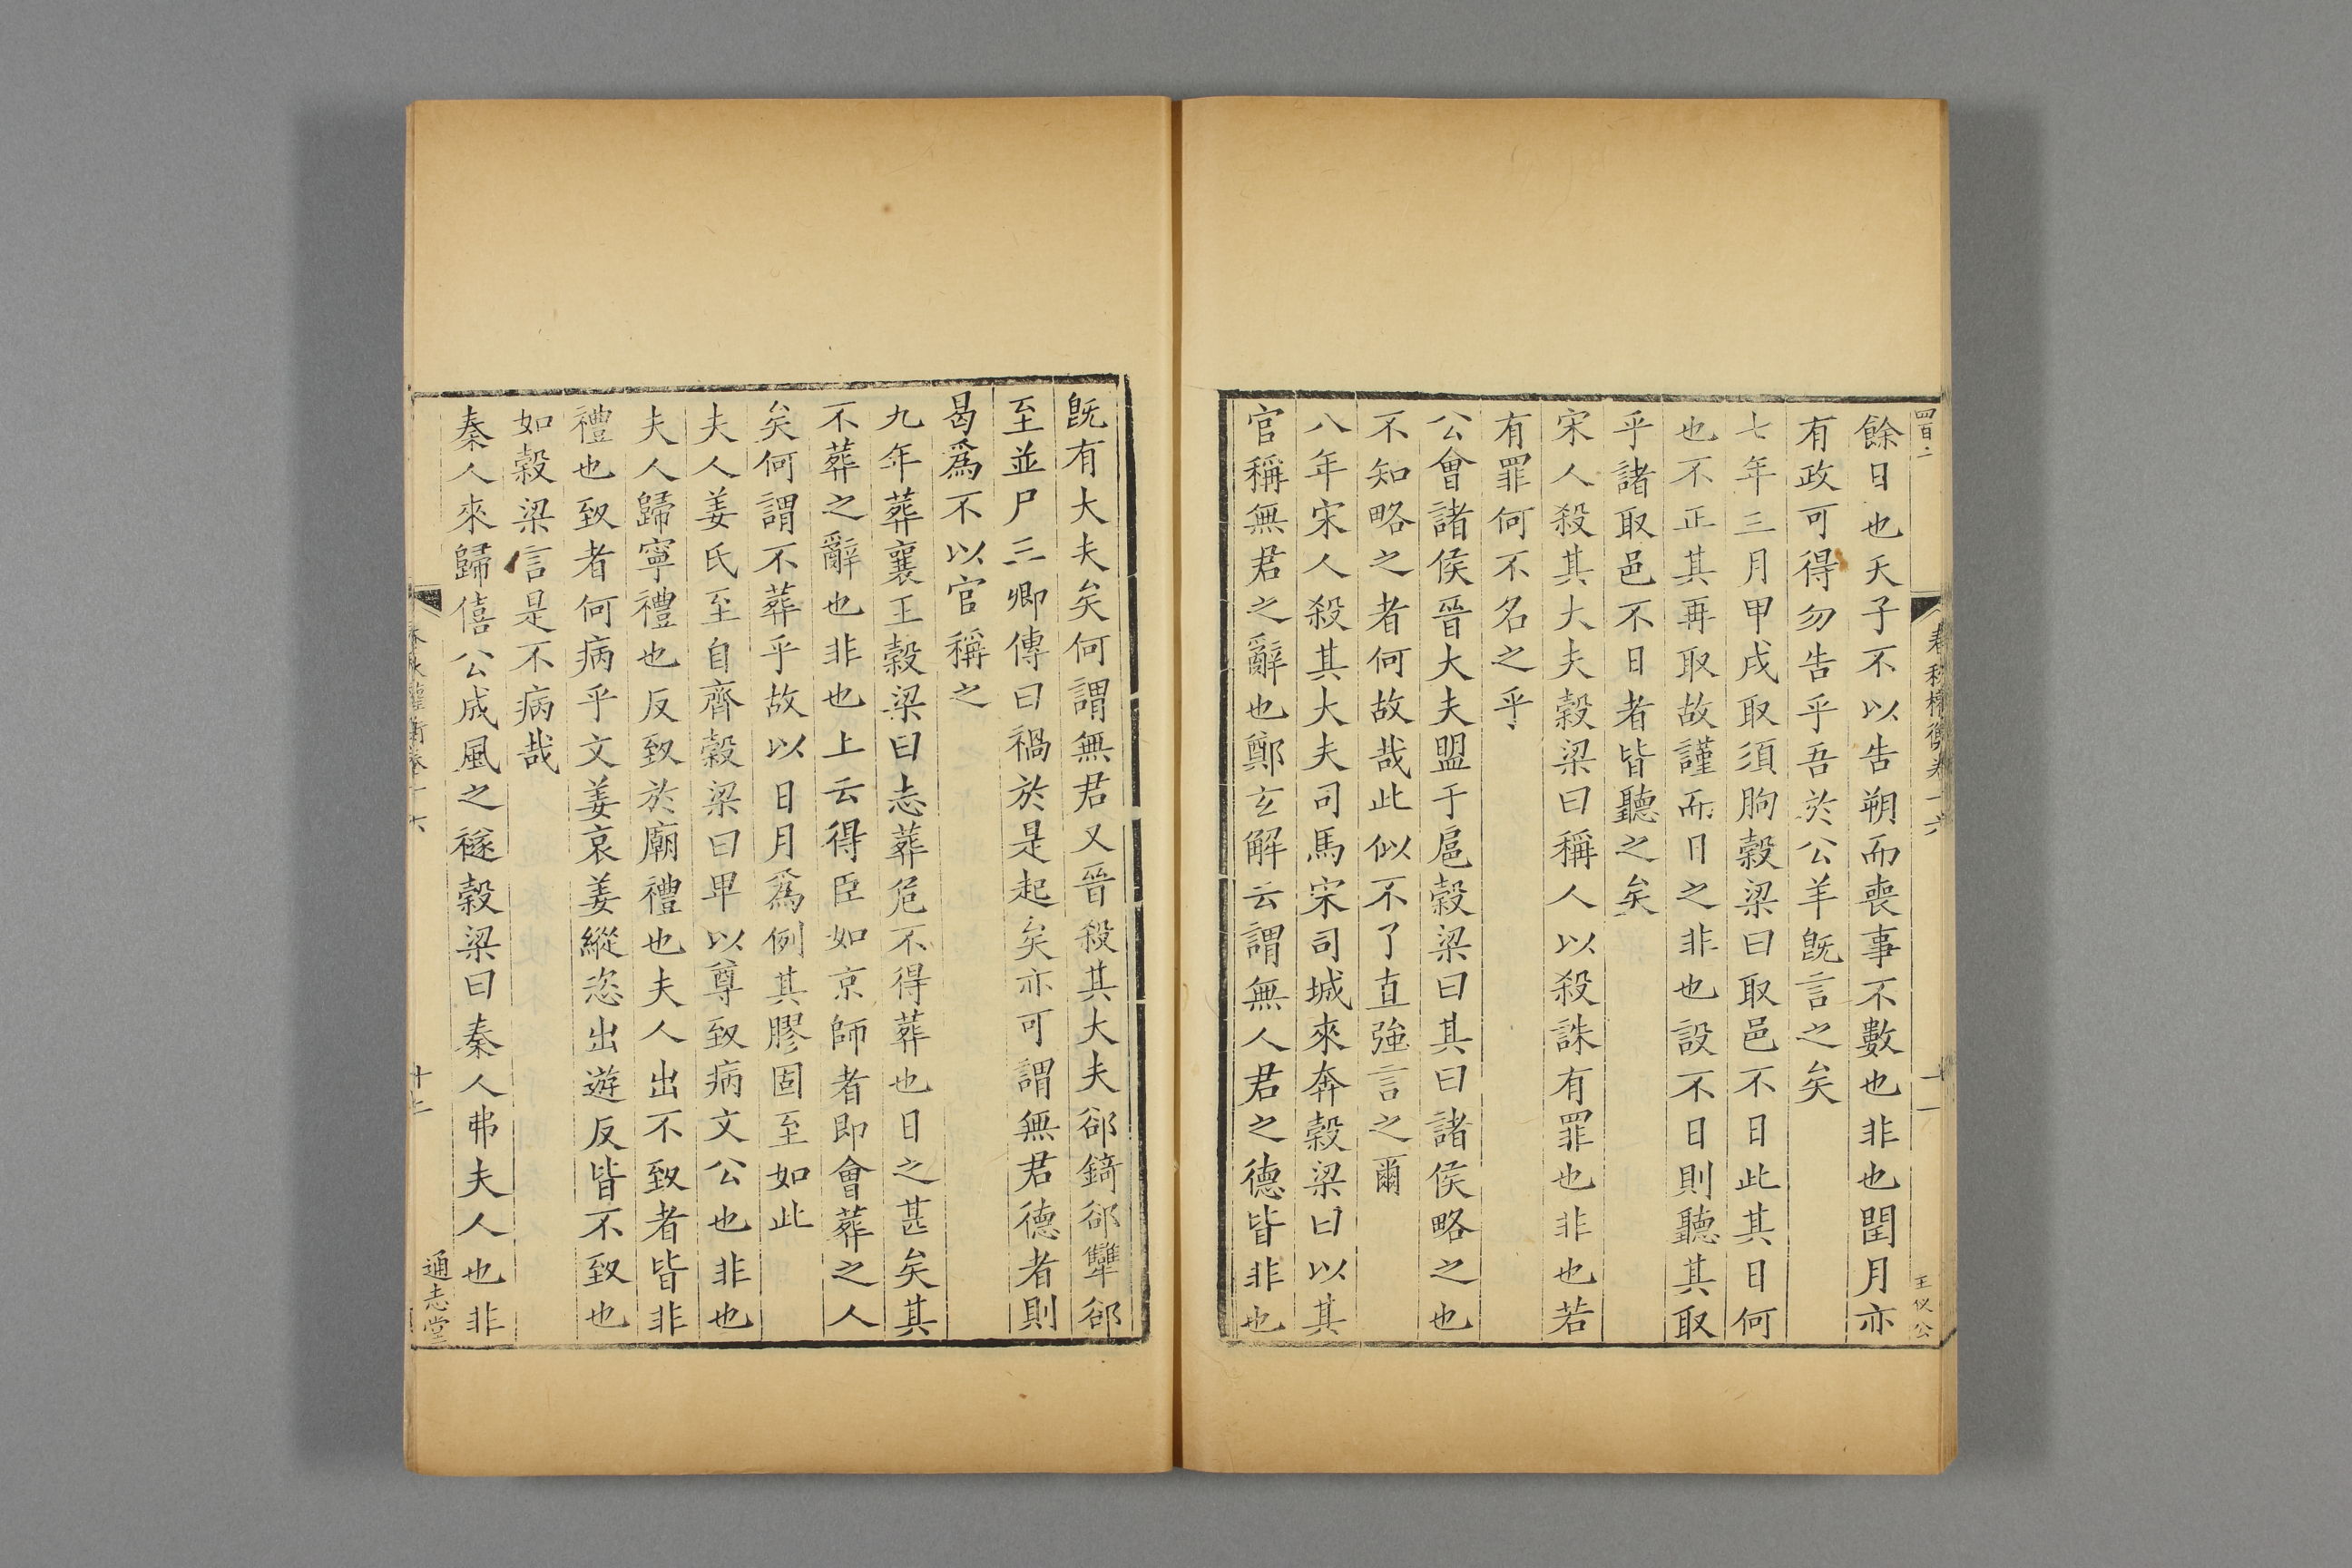 四百二
春秋權衡卷十六
十一
王似公
餘日也天子不以告朔而喪事不數也非也閏月亦
有政可得勿告乎吾於公羊旣言之矣
七年三月甲戌取須朐穀梁曰取邑不日此其日何
也不正其再取故謹而日之非也設不日則聽其取
乎諸取邑不日者皆聽之矣
宋人殺其大夫穀梁曰稱人以殺誅有罪也非也若
有罪何不名之乎
公會諸侯晉大夫盟于扈穀梁曰其曰諸侯略之也
不知略之者何故哉此似不了直強言之爾
八年宋人殺其大夫司馬宋司城來奔穀梁曰以其
官稱無君之辭也鄭玄解云謂無人君之德皆非也
旣有大夫矣何謂無君又晉殺其大夫郤錡郤犫郤
至並尸三卿傳曰禍於是起矣亦可謂無君德者則
曷爲不以官稱之
九年葬襄王穀梁曰志葬危不得葬也日之甚矣其
不葬之辭也非也上云得臣如京師者即會葬之人
矣何謂不葬乎故以日月爲例其膠固至如此
夫人姜氏至自齊穀梁曰卑以尊致病文公也非也
夫人歸寧禮也反致於廟禮也夫人出不致者皆非
禮也致者何病乎文姜哀姜縱恣出遊反皆不致也
如穀梁言是不病哉
秦人來歸僖公成風之襚穀梁曰秦人弗夫人也非
春秋權衡卷十六
十二
通志堂